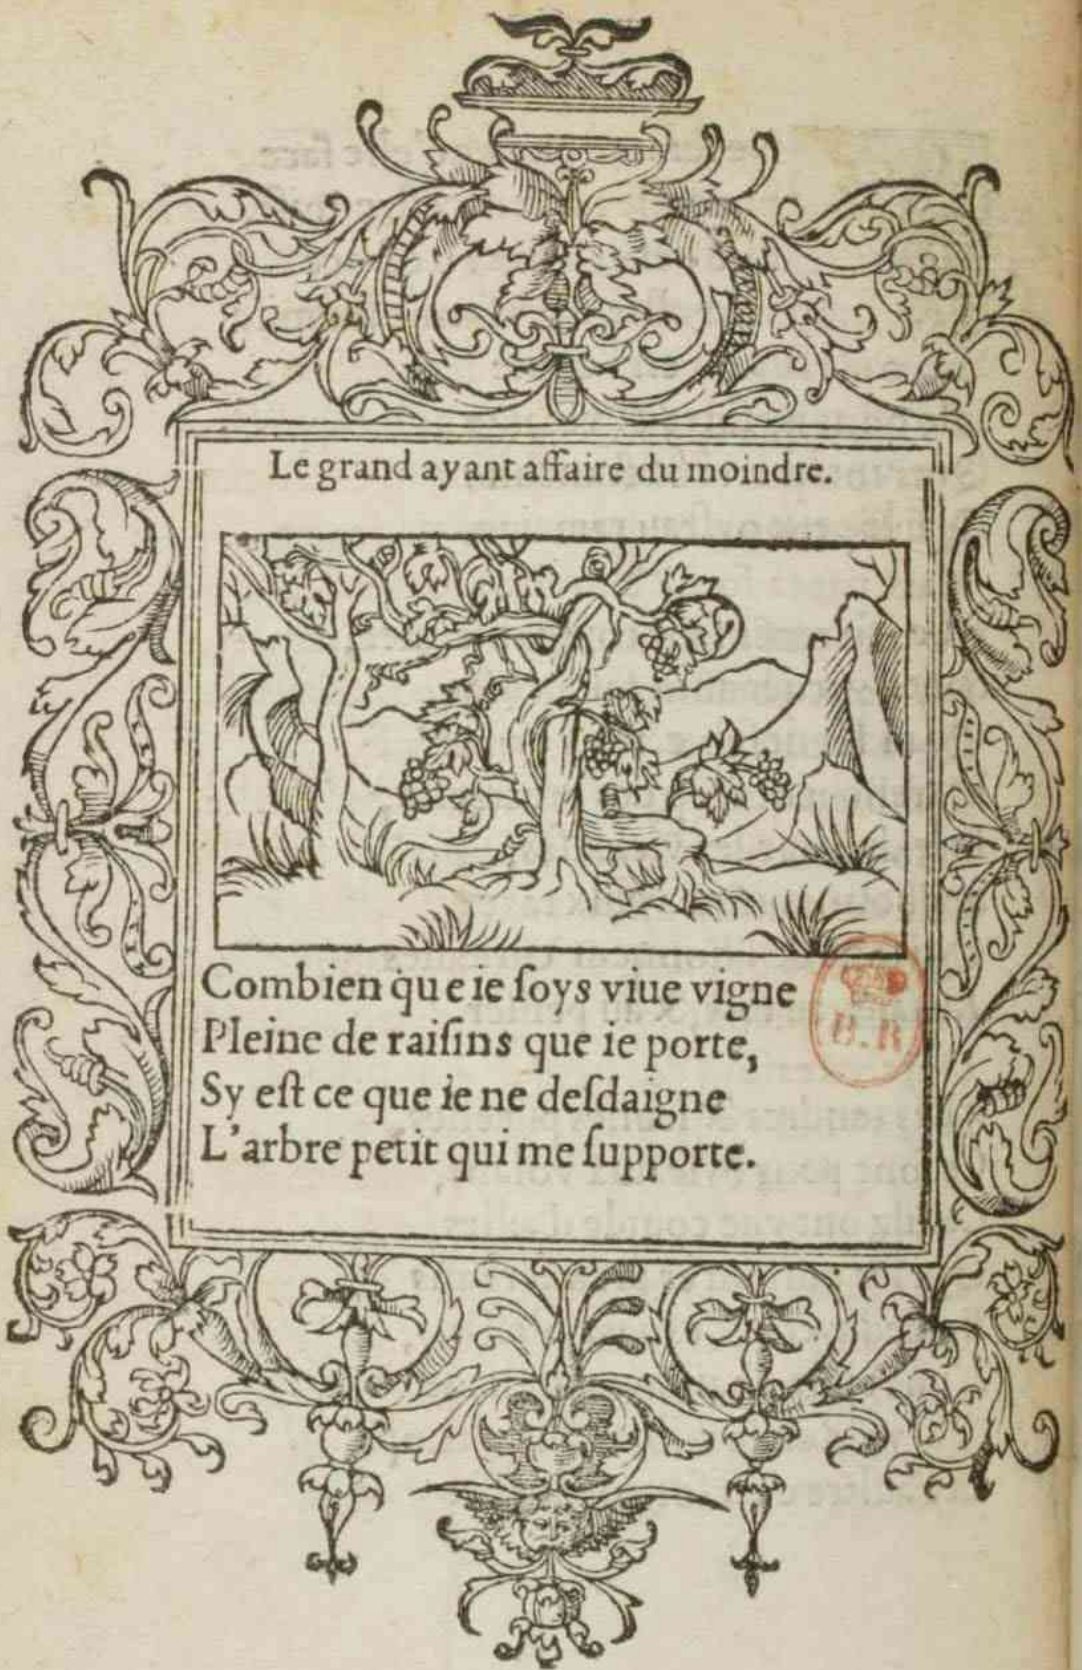 Le grand ayant affaire du moindre.
Combien que ie ſoys viue vigne
Pleine de raiſins que ie porte,
Sy eſt ce que ie ne deſdaigne
L'arbre petit qui me ſupporte.
B.R